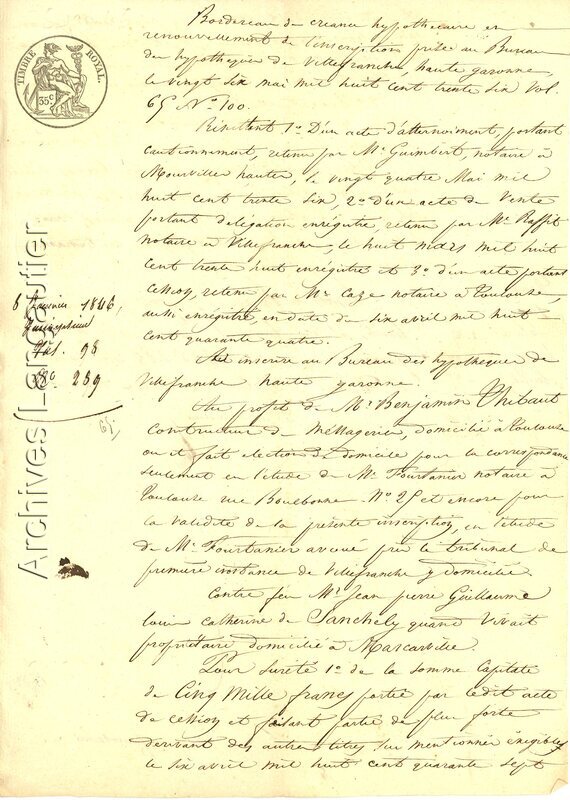 TIMBRE ROYAL.
35c
Bordereau de creance hypothecaire en
renouvellement de l'inscription prise au Bureau
des hypotheques de Villefranche, haute garonne,
le vingt six mai mil huit cent trente six Vol.
65 No 100.
Résultent 1o D'un acte d'attermoiment, portant
cautionnement, retenu par Me Guimbert, notaire à
Mourvilles hautes, le vingt quatre Mai mil
huit cent trente six, 2o d'un acte de Vente
portant delégation enrégitré, retenu par Me Raffit
notaire à Villefranche, le huit mars mil huit
cent trente huit enrégitré et 3o d'un acte portant
cession, retenu par Me Caze notaire à Toulouse,
aussi enregitré, en date du six avril mil huit
cent quarante quatre.
inscrire au Bureau des hypotheques de
Villefranche haute garonne.
Au profit de Mr Benjamin Thibaut
Constructeur de Messagerie, domicilié à Toulouse
ou il fait election de domicile pour la correspondance
seulement en l'etude de Me Fourtanier notaire à
Toulouse rue Boulbonne No 25 et encore pour
la validité de la présente inscription, en l'étude
de Me Fourtanier avoué près le tribunal de
première instance de Villefranche y domicilié.
Contre feu Mr Jean pierre Guillaume
louis catherine de Sanchely quand vivait
propriétaire domicilié à Mascarville.
Pour sureté 1o de la somme Capitale
de Cinq Mille francs portée par ledit acte
de cession et faisant partie de plus forte
derivant des autres titres sus mentionné éxigibles
le six avril mil huit cent quarante sept
6 Janvier 1846,
Vol. 98
No 259
65,
Archives(Lengautier